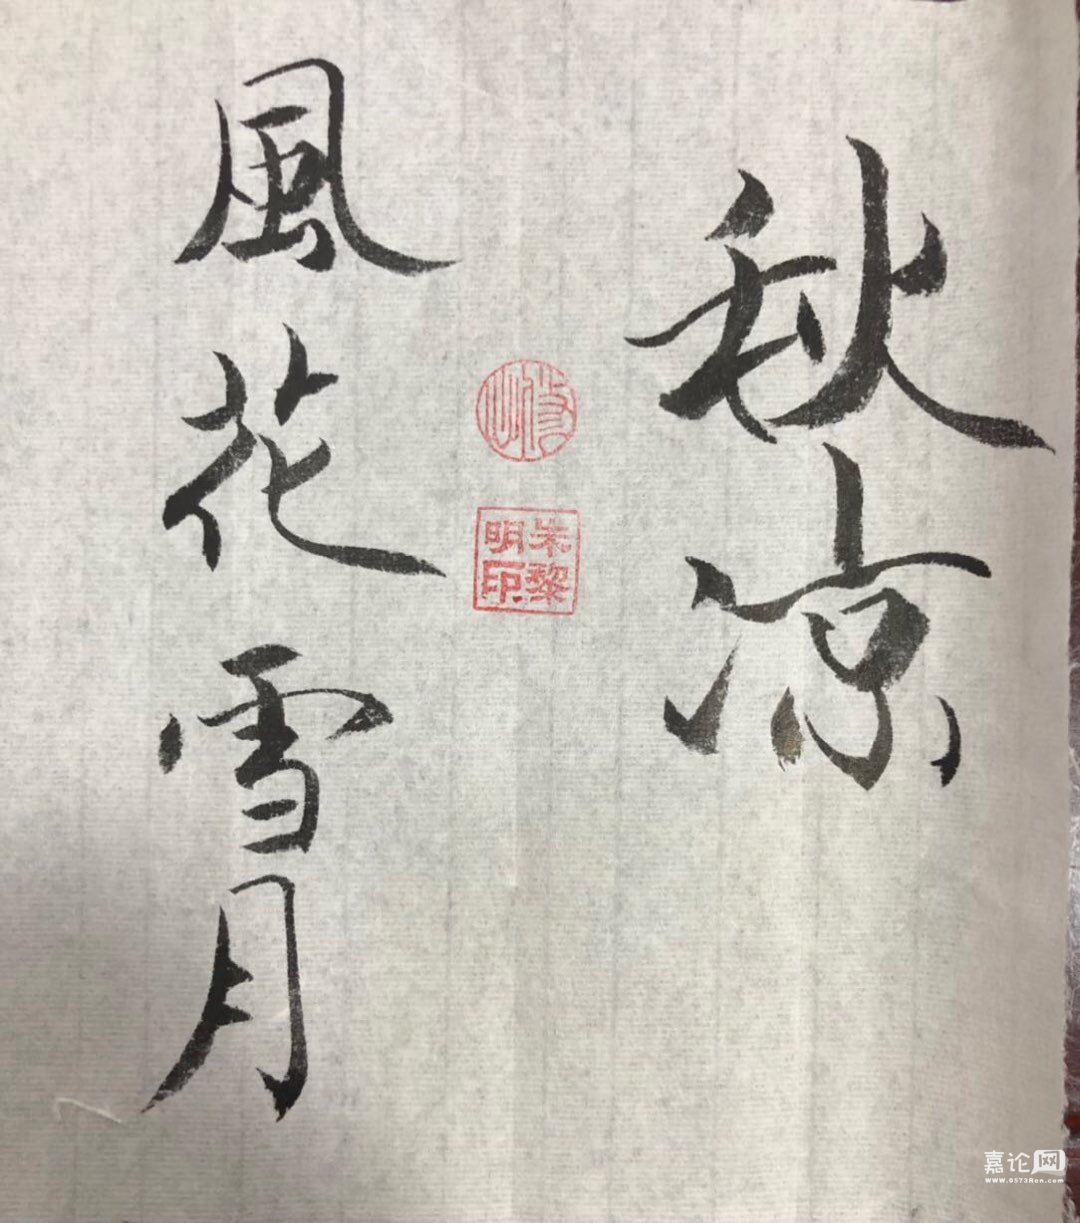 秋凉
風花雪月
朱黎
明印
嘉论网
www.0573Ren.com